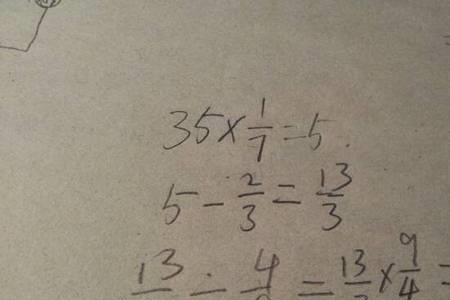 35×1/7=5.
5-2/3=13/3
13 ÷ 4 = 13 × 9/4 =